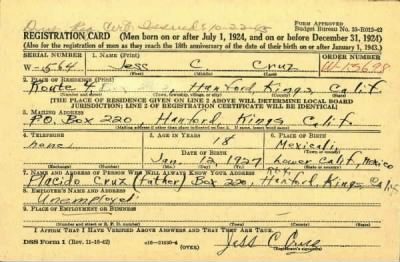 Form Approved
Budget Bureau No. 33-R012-42
REGISTRATION CARD (Men born on or after July 1, 1924, and on or before December 31, 1924)
(Also for the registration of men as they reach the 18th anniversary of the date of their birth on or after January 1, 1943.)
SERIAL NUMBER 1. NAME (Print) ORDER NUMBER
W-564 Jess C Cruz W-13698
2. PLACE OF RESIDENCE (Print)
Route 4 Hanford, Kings, Calif.
[THE PLACE OF RESIDENCE GIVEN ON LINE 2 ABOVE WILL DETERMINE LOCAL BOARD
JURISDICTION; LINE 2 OF REGISTRATION CERTIFICATE WILL BE IDENTICAL]
3. MAILING ADDRESS
P.O. Box 220 Hanford Kings Calif.
4. TELEPHONE 5. AGE IN YEARS 6. PLACE OF BIRTH
none 18 Mexicali,
DATE OF BIRTH
Jan. 12, 1927 Lower Calif., Mexico
7. NAME AND ADDRESS OF PERSON WHO WILL ALWAYS KNOW YOUR ADDRESS
Placido Cruz (Father) Box 220, Hanford, Kings, Calif.
8. EMPLOYER'S NAME AND ADDRESS
Unemployed
9. PLACE OF EMPLOYMENT OR BUSINESS
I AFFIRM THAT I HAVE VERIFIED ABOVE ANSWERS AND THAT THEY ARE TRUE.
DSS Form 1 (Rev. 11-16-42) (OVER) Jess C Cruz